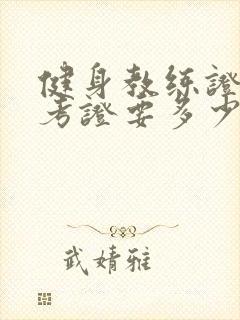 健身教练證
考證要多少
武婧雅